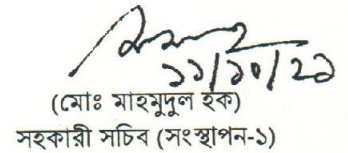 ১১/১০/২১
(মোঃ মাহমুদুল হক)
সহকারী সচিব (সংস্থাপন-১)